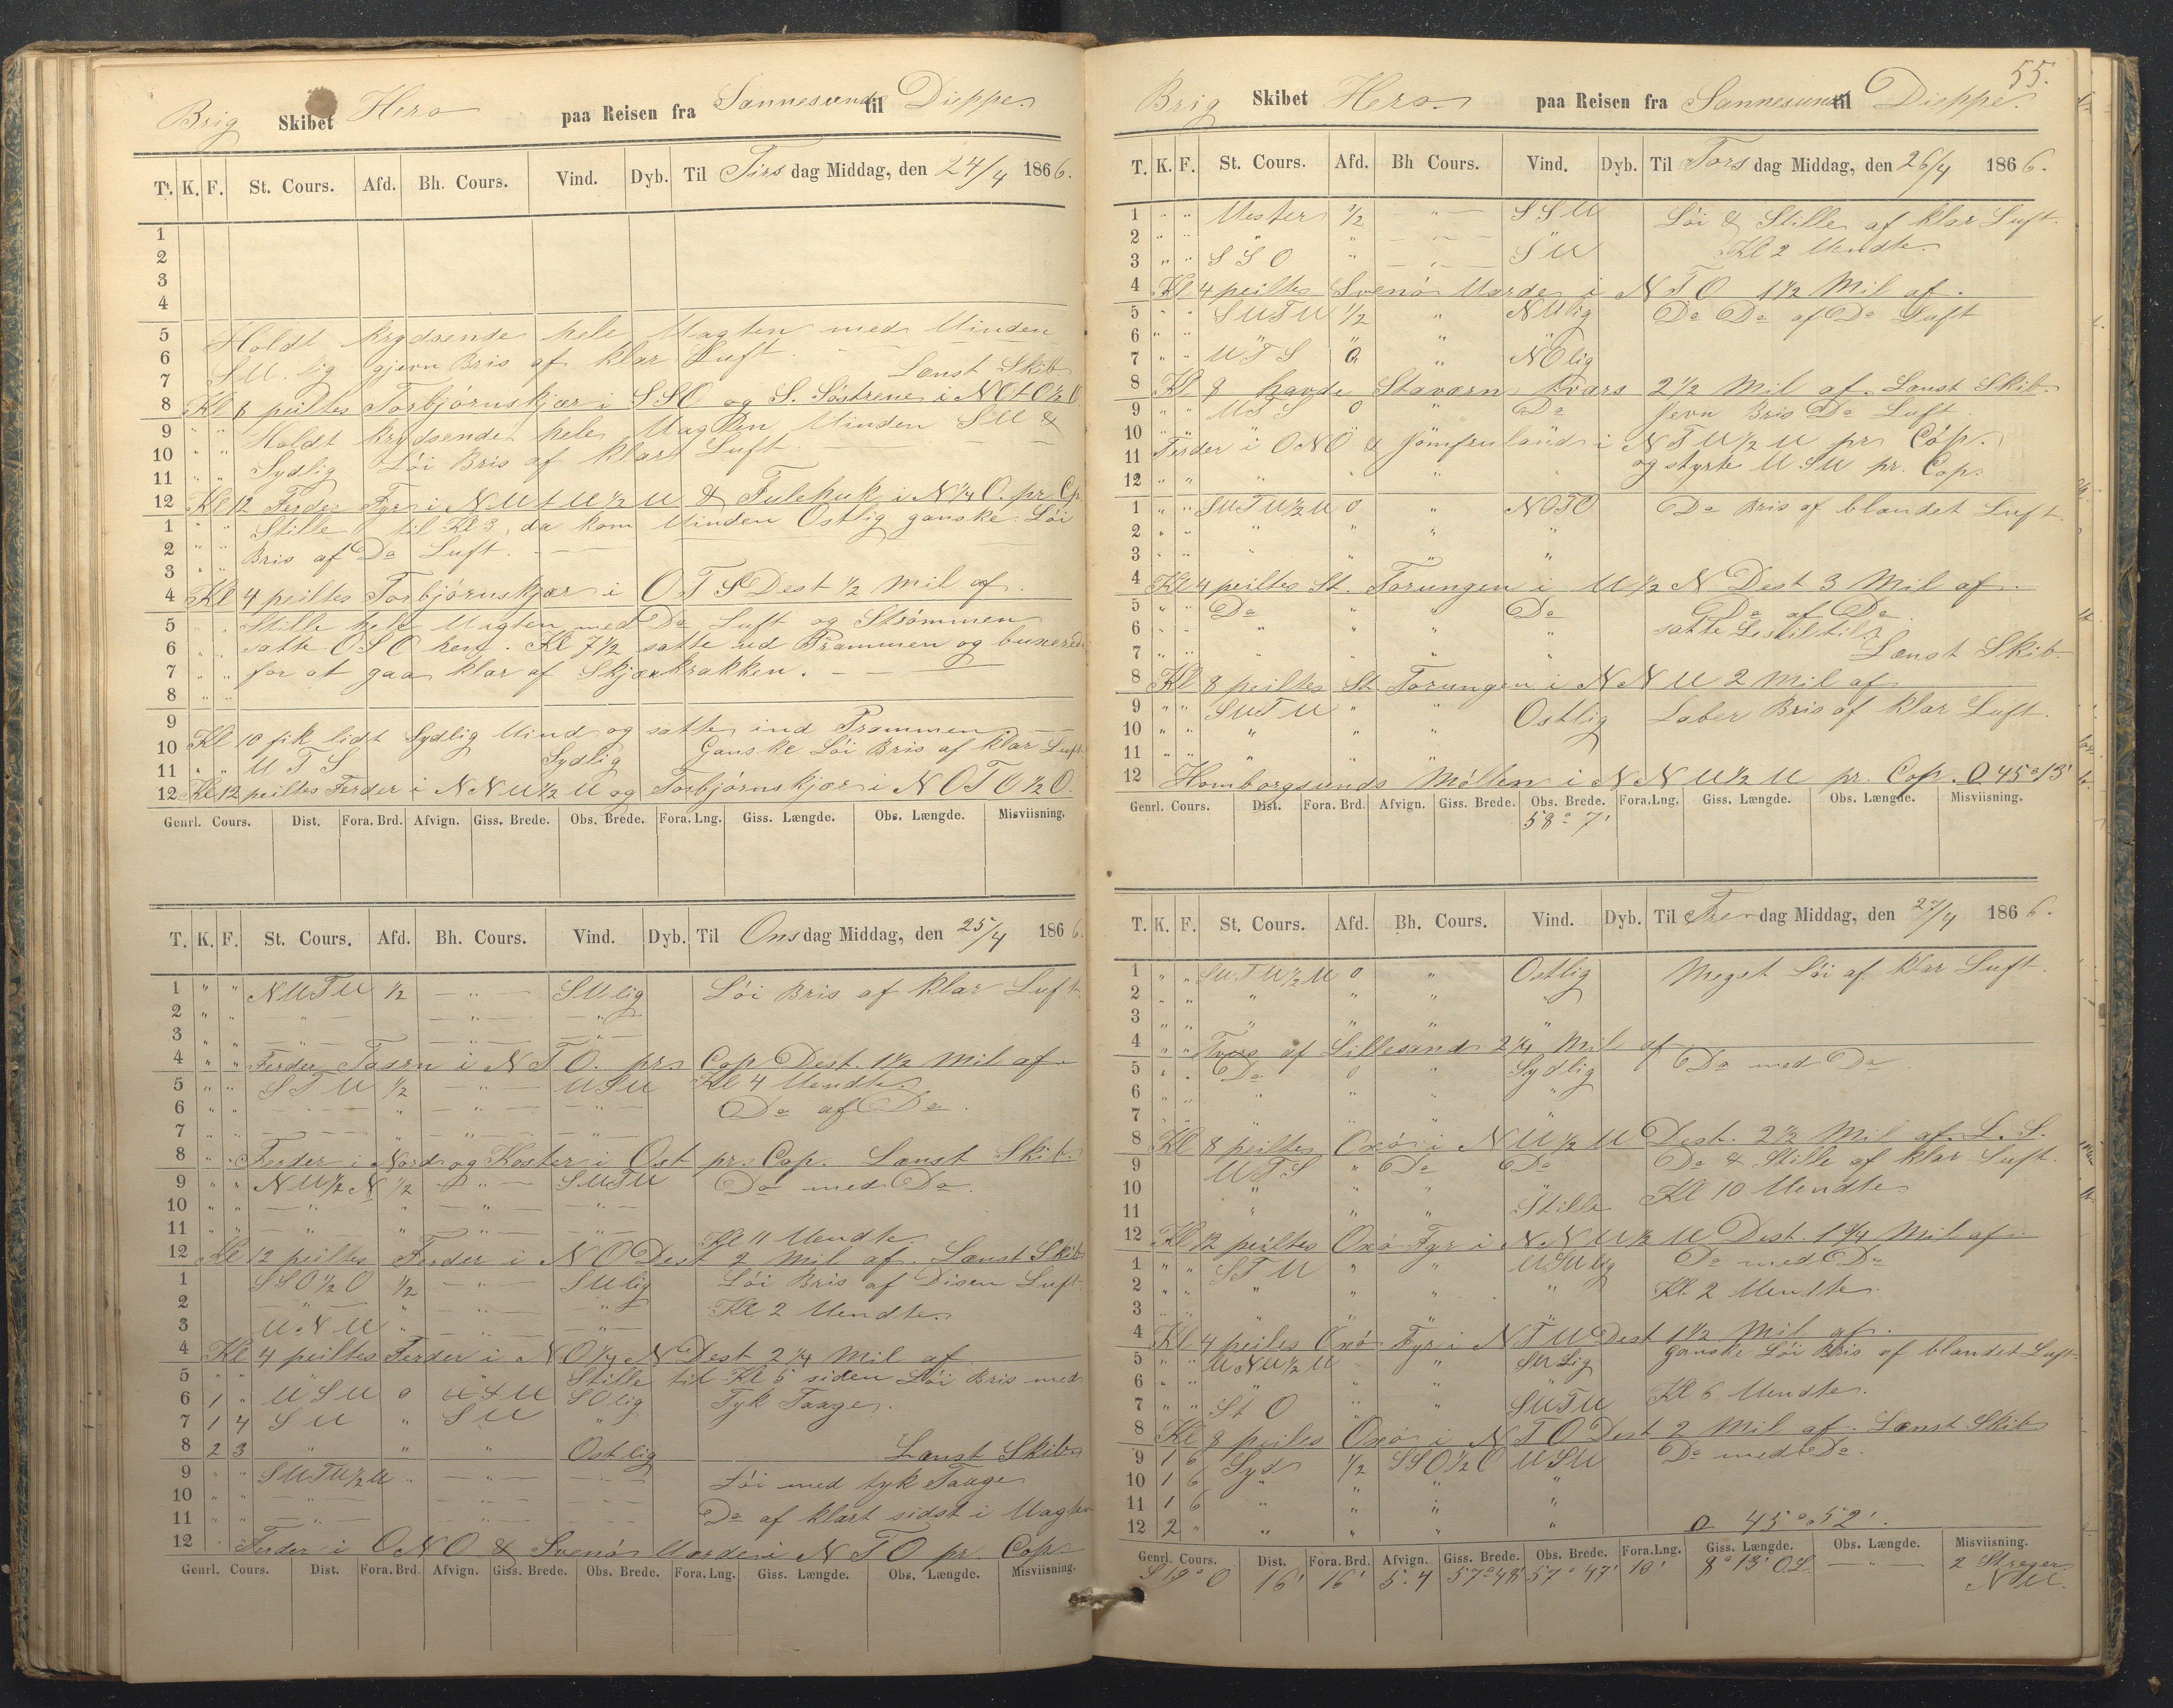 Brig Skibet Hero paa Reisen fra Sannesund til Dieppe
T. K. F. St. Cours. Afd. Bh. Cours. Vind. Dyb. Til Tirsdag Middag, den 24/4 1866.
1
2
3
4
5 Holdt krydsende hele Vagten med Vinden
6 SV. lig jevn Bris af klar Luft.
7 Lænst Skib
8 Kl 8 peiltes Torbjørnskjær i SSO og S. Søstrene i NOtO½O
9 " " Holdt krydsende hele Vagten Vinden SV &
10 " " Sydlig Løi Bris af klar Luft
11 " "
12 Kl 12 Ferder Fyr i NVtV½V & Fulehuk i N¼O. pr. Cp
1 " " Stille til Kl 3, da kom Vinden Ostlig ganske Løi
2 " " Bris af Do Luft.
3 " "
4 Kl 4 peiltes Torbjørnskjær i OTS Dest ½ Mil af.
5 " " Stille hele Vagten med Do Luft og Strømmen
6 " " satte OSO hen. Kl 7½ satte ud Prammen og buxerede
7 " " for at gaa klar af Skjærkrakken.
8 " "
9
10 Kl 10 fik lidt Sydlig Vind og satte ind Prammen
11 " " VTS Sydlig Ganske Løi Bris af klar Luft
12 Kl 12 peiltes Ferder i NNV½V og Torbjørnskjær i NOTO½O.
Genrl. Cours. Dist. Fora. Brd. Afvign. Giss. Brede. Obs. Brede. Fora. Lng. Giss. Længde. Obs. Længde. Misviisning.
T. K. F. St. Cours. Afd. Bh. Cours. Vind. Dyb. Til Onsdag Middag, den 25/4 1866.
1 " " NVTV ½ " SVlig Løi Bris af klar Luft
2 " " " " "
3 " " " "
4 " " Ferder Taarn i NTO. pr. Cop Dest. 1½ Mil af
5 " " STV ½ " VSV Kl 4 Vendte
6 " " " " " Do af Do.
7 " " " "
8 " " Ferder i Nord og Koster i Ost pr. Cop. Lænst Skib
9 " " NV½N ½ " SVTV Do med Do.
10 " " " " " "
11 " " " " " Kl 11 Vendte
12 Kl 12 peiltes Ferder i NO Dest 2 Mil af. Lænst Skib
1 SSO½O ½ " SVlig Løi Bris af Disen Luft
2 " " " " Kl 2 Vendte
3 VNV " " "
4 Kl 4 peiltes Ferder i NO¼N Dest 2¼ Mil af
5 " " " Stille til Kl 5 siden Løi Bris med
6 1 " VSV 0 VSV SOlig Tyk Taage.
7 1 4 SV " SV "
8 2 3 " " " Ostlig Lænst Skib
9 " " SVTV½V " " " Løi med tyk Taage
10 " " " " "
11 " " " " Do af klart sidst i Vagten
12 " Ferder i ONO & Svenør Varde i NTO pr. Cop
Genrl. Cours. Dist. Fora. Brd. Afvign. Giss. Brede. Obs. Brede. Fora. Lng. Giss. Længde. Obs. Længde. Misviisning.
55.
Brig Skibet Hero paa Reisen fra Sannesund til Dieppe.
T. K. F. St. Cours. Afd. Bh Cours. Vind. Dyb. Til Torsdag Middag, den 26/4 1866.
1 " " Vester ½ " SSV Løi & Stille af klar Luft
2 " " " " " " Kl 2 Vendte
3 " " SSO " " SV
4 Kl 4 peiltes Svenør Varde i NTO 1½ Mil af.
5 " " SVTV ½ " NVlig Do Do af Do Luft
6 " " " " " "
7 " " VTS 0 " NOlig
8 Kl 8 havde Staværn tvars 2½ Mil af. Lænst Skib.
9 " " VTS 0 " Do Jevn Bris Do Luft
10 " "
11 Ferder i ONO & Jomfruland i NTV½V pr Cop.
12 " " " " " " og styrte VSV pr. Cop.
1 " " SVTV½V 0 " NOTO Do Bris af blandet Luft
2 " " " " " "
3 " " " " " "
4 Kl 4 peiltes St. Torungen i V½N Dest 3 Mil af.
5 " " Do " " Do Do af Do
6 " " " " " " satte Leseil til
7 " " " " " " Lænst Skib
8 Kl 8 peiltes St Torungen i NNV 2 Mil af
9 " " SVTV " " Ostlig Laber Bris af klar Luft.
10 " " " " "
11 " "
12 Homborgsunds Møllen i NNV½V pr. Cop. O 45° 13'
Genrl. Cours. Dist. Fora. Brd. Afvign. Giss. Brede. Obs. Brede. Fora. Lng. Giss. Længde. Obs. Længde. Misviisning.
58° 7'
T. K. F. St. Cours. Afd. Bh. Cours. Vind. Dyb. Til Fredag Middag, den 27/4 1866.
1 " " SVTV½V 0 " Ostlig Meget Løi af klar Luft.
2 " " " " " "
3 " " " " " "
4 " " Tvers af Lillesand 2¼ Mil af
5 " " Do 0 " Sydlig Do med Do
6 " " " " " "
7 " " " " " "
8 Kl 8 peiltes Oxø i NV½V Dest. 2½ Mil af. L. S.
9 VTS " Do Do Do & Stille af klar Luft.
10 " " " Kl 10 Vendte
11 " " " Stille
12 Kl 12 peiltes Oxø Fyr i NNV½V Dest. 1¾ Mil af
1 " " STV " " VSVlig Do med Do
2 " " " " " " Kl 2 Vendte
3 " " " " " "
4 Kl 4 peiles Oxø Fyr i NTV Dest 1½ Mil af.
5 " " VNV½V " SVLig ganske Løi Bris af blandet Luft
6 " " " " " Kl 6 Vendte.
7 " " StO " " SVTV
8 Kl 8 peiles Oxø i NTO Dest 2 Mil af. Lænst Skib
9 1 6 Syd ½ SSO½O VSV Do med Do.
10 1 6 " " " "
11 1 6 " " " "
12 2 " " " " " O 45° 52'.
Genrl. Cours. Dist. Fora. Brd. Afvign. Giss. Brede. Obs. Brede. Fora. Lng. Giss. Længde. Obs. Længde. Misviisning.
S 19° O 16' 16' 5.4 57° 48' 57° 47' 10' 8° 13' OL " 2 Streger
NV.